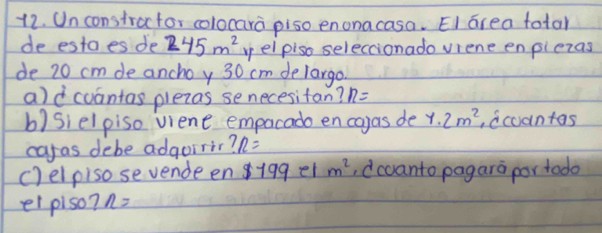 12. Un constructor colocará piso en una casa. El área total
de esta es de 245 m² y el piso seleccionado viene en piezas
de 20 cm de ancho y 30 cm de largo.
a) ¿cuántas piezas se necesitan? R=
b) Si el piso viene empacado en cajas de 1.2 m², ¿cuantas
cajas debe adquirir? R=
c) el piso se vende en $199 el m², ¿cuanto pagará por todo
el piso? R=